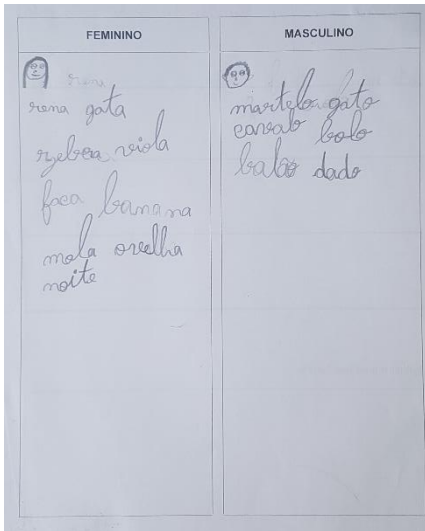 FEMININO
rena
rena gata
zebra viola
foca banana
mola ovelha
noite
MASCULINO
martelo gato
cavalo bolo
balão dado